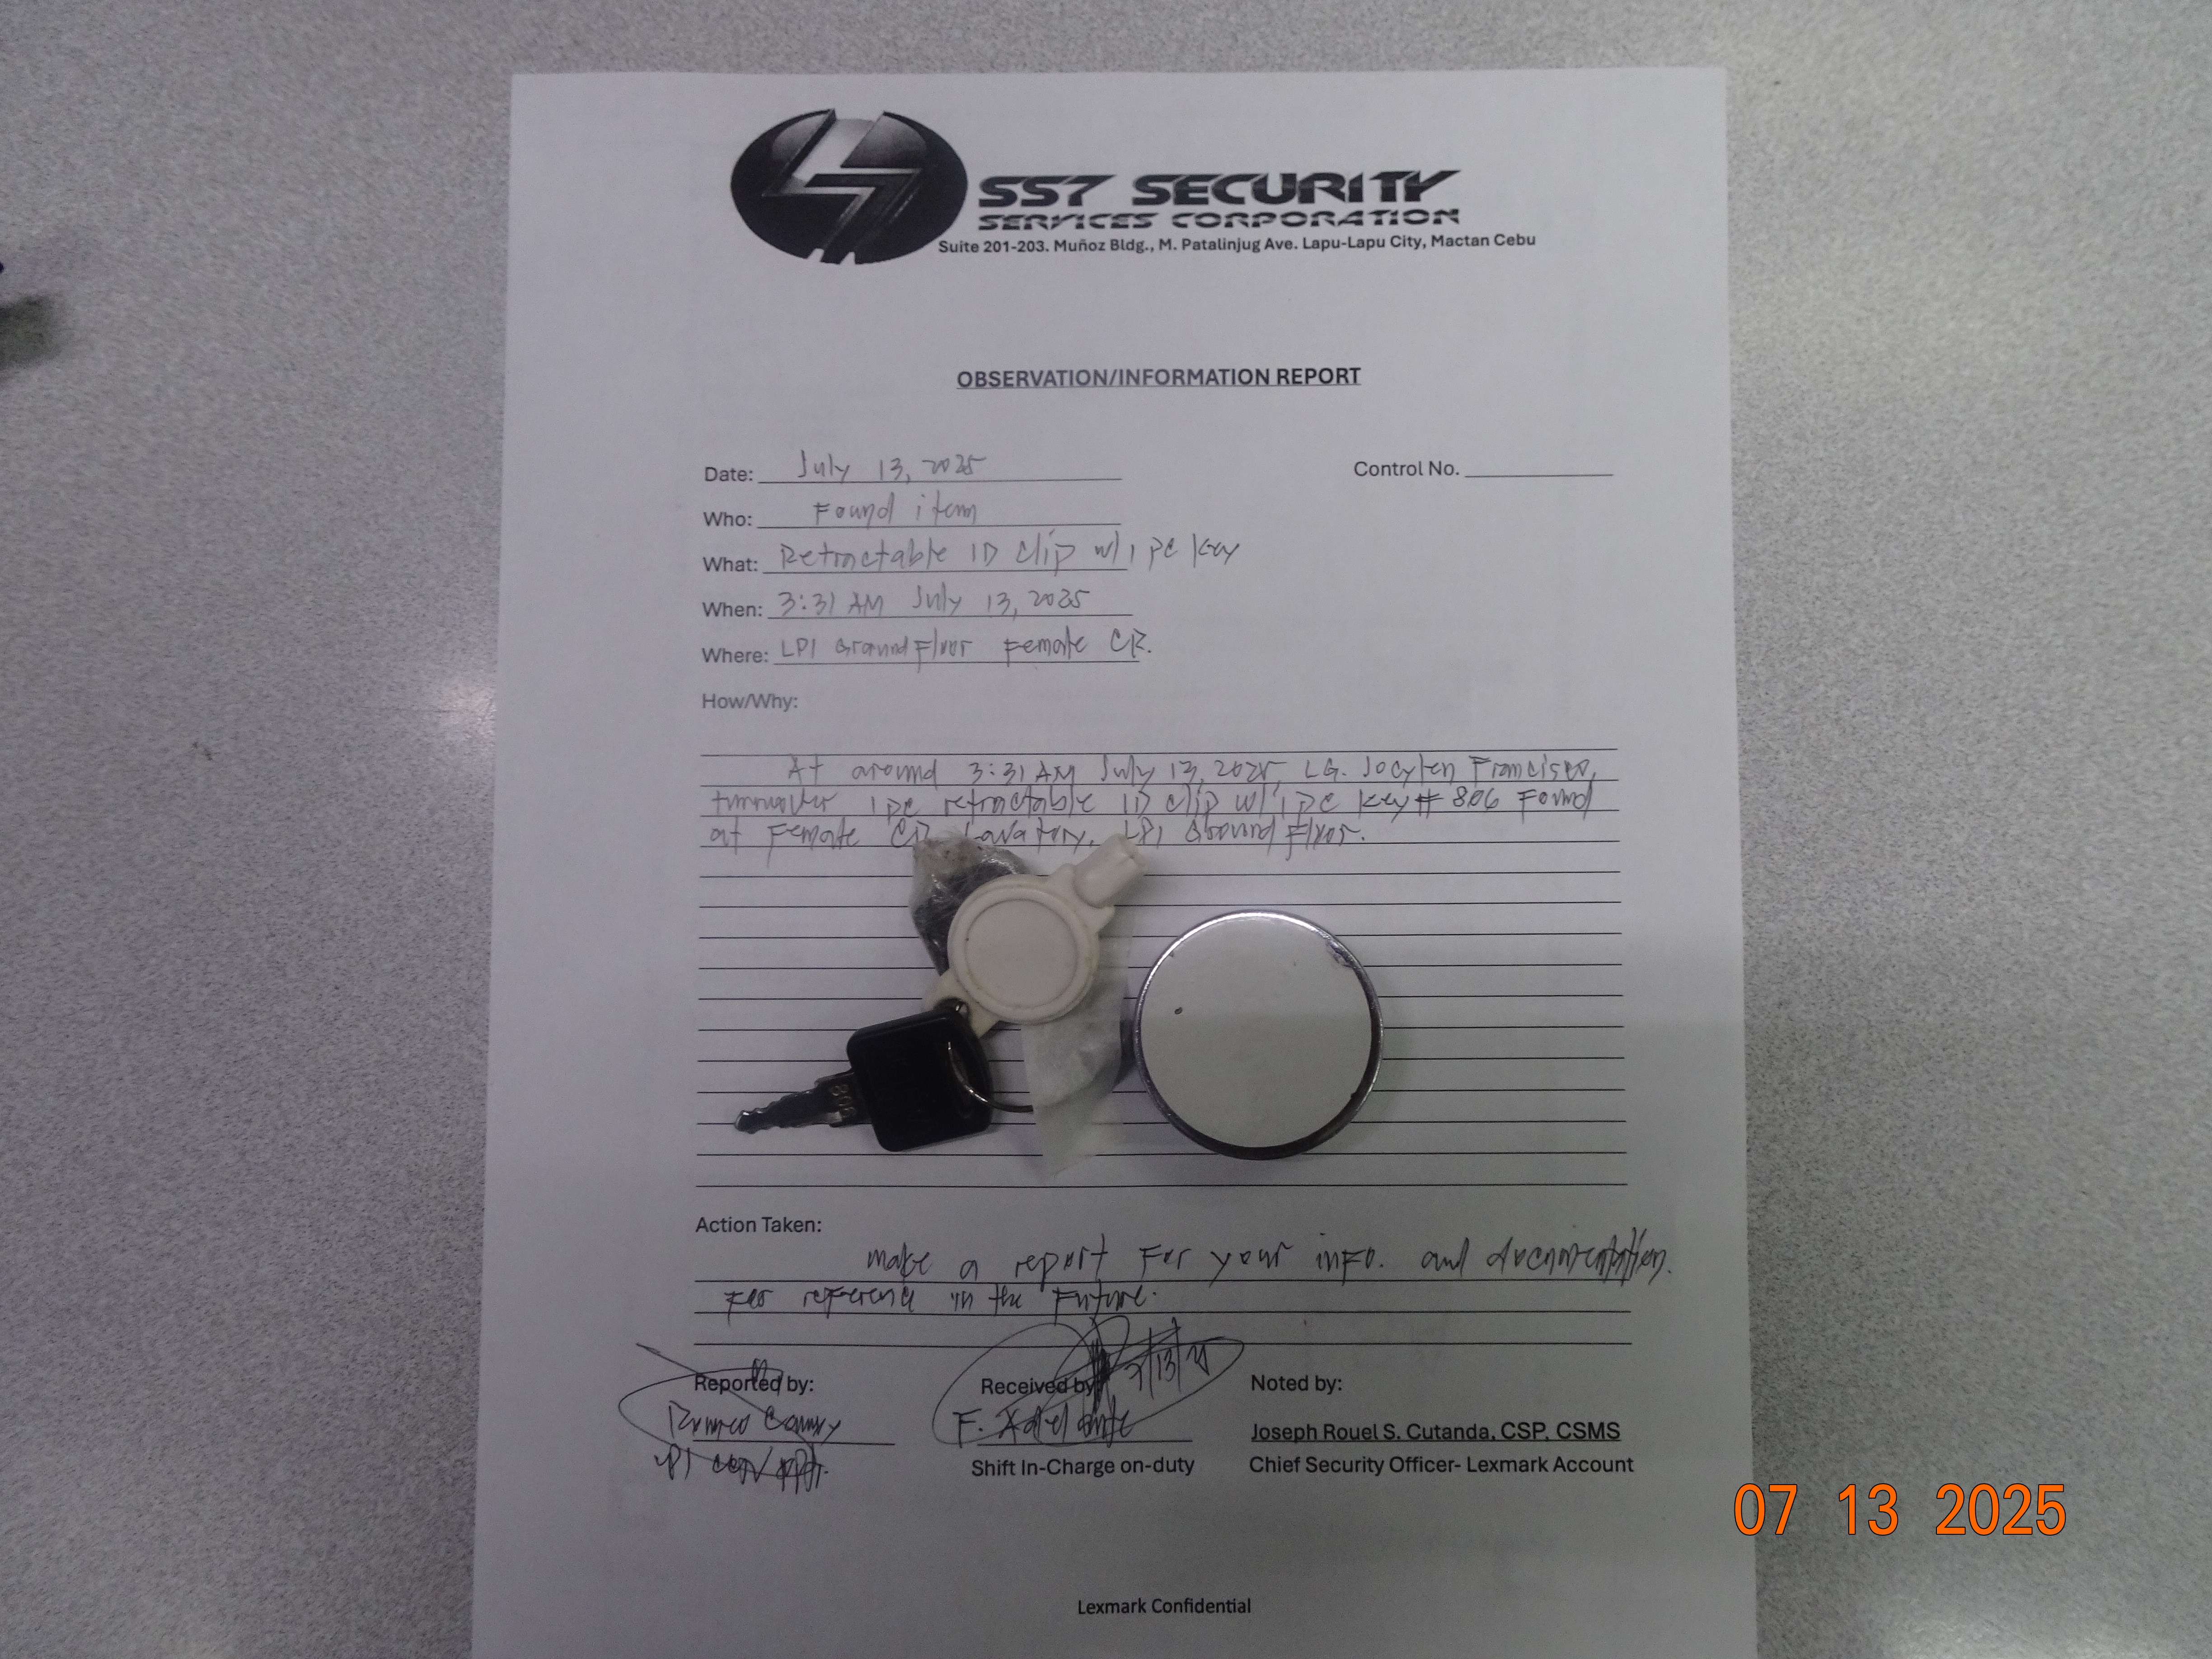 SS7 SECURITY
SERVICES CORPORATION
Suite 201-203. Muñoz Bldg., M. Patalinjug Ave. Lapu-Lapu City, Mactan Cebu
OBSERVATION/INFORMATION REPORT
Date: July 13, 2025
Control No.
Who: Found item
What: Retractable ID clip w/ 1 pc key
When: 3:31 AM July 13, 2025
Where: LPI Ground Floor Female CR.
How/Why:
At around 3:31 AM July 13, 2025, LG. Jocylen Francisco,
turnover 1 pc retractable ID clip w/ 1 pc key # 806 Found
at Female CR Lavatory, LPI Ground Floor.
806
Action Taken:
make a report For your info. and documentation.
For reference in the Future.
Reported by:
Received by:
7/13/25
Noted by:
Romeo
F. Adelante
Joseph Rouel S. Cutanda, CSP, CSMS
Shift In-Charge on-duty
Chief Security Officer- Lexmark Account
07 13 2025
Lexmark Confidential